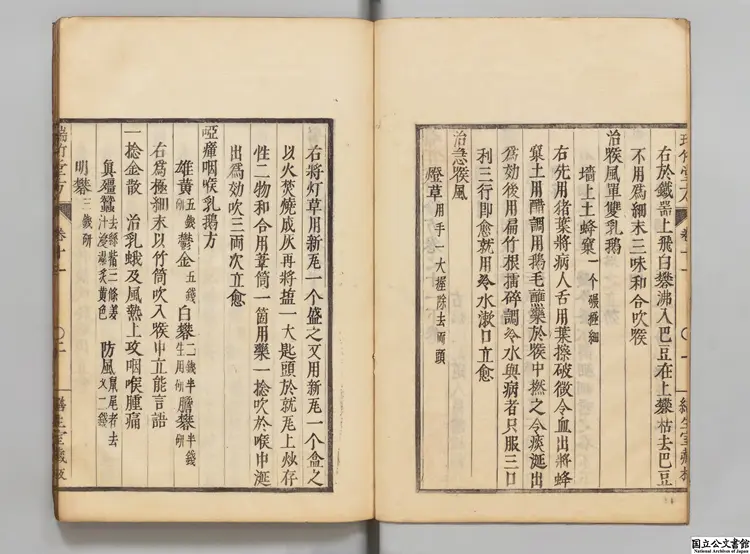 右於鐵器上飛白礬沸入巴豆在上礬枯去巴豆
不用爲細末三味和合吹喉
治喉風單雙乳鵝
墻上土蜂窠一个碾極細
右先用猪葉將病人舌用葉擦破微令血出將蜂
窠土用醋調用鵝毛蘸藥於喉中撚之令痰涎出
爲効後用扁竹根擂碎調冷水與病者只服三口
利三行即愈就用冷水漱口立愈
治急喉風
燈草用手一大握除去兩頭
右將灯草用新瓦一个盛之又用新瓦一个盒之
以火焚燒成灰再將塩一大匙頭於就瓦上炒存
性二物和合用葦筒一箇用藥一捻吹於喉中涎
出爲効吹三兩次立愈
啞瘴咽喉乳鵝方
雄黃五錢研鬱金五錢白礬二錢半生用研膽礬半錢研
右爲極細末以竹筒吹入喉中立能言語
一捻金散 治乳蛾及風熱上攻咽喉腫痛
眞殭蠶去絲嘴三條姜汁浸灸黃色 防風鼠尾者去乂二錢
明礬三錢研
瑞竹堂方 卷十一 〇二
国立公文書館
National Archives of Japan